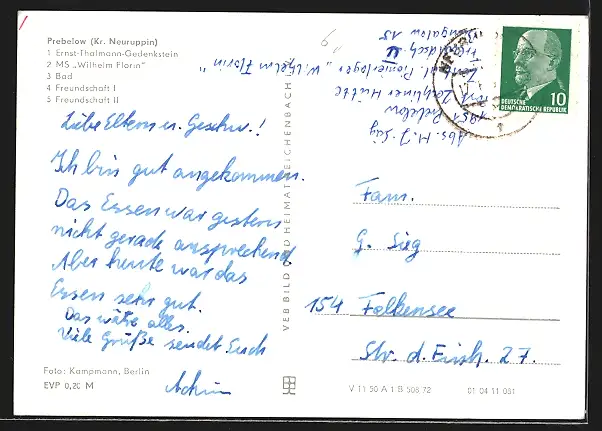 Prebelow (Kr. Neuruppin)
1 Ernst-Thälmann-Gedenkstein
2 MS „Wilhelm Florin"
3 Bad
4 Freundschaft I
5 Freundschaft II
Liebe Eltern u. Geschw.!
Ich bin gut angekommen.
Das Essen war gestern
nicht gerade ansprechend
Aber heute war das
Essen sehr gut.
Das wäre alles.
Viele Grüße sendet Euch
Achim
Foto: Kampmann, Berlin
EVP 0,20 M
VEB BILD UND HEIMAT REICHENBACH
Abs. H. J. Sieg
1951 Prebelow
Zechliner Hütte
Pionierlager „Wilhelm Florin"
Freundsch. II
Bungalow 15
DEUTSCHE
DEMOKRATISCHE REPUBLIK
10
Fam.
G. Sieg
154 Falkensee
Str. d. Einh. 27.
V 11 50 A 1 B 508/72
01 04 11 081